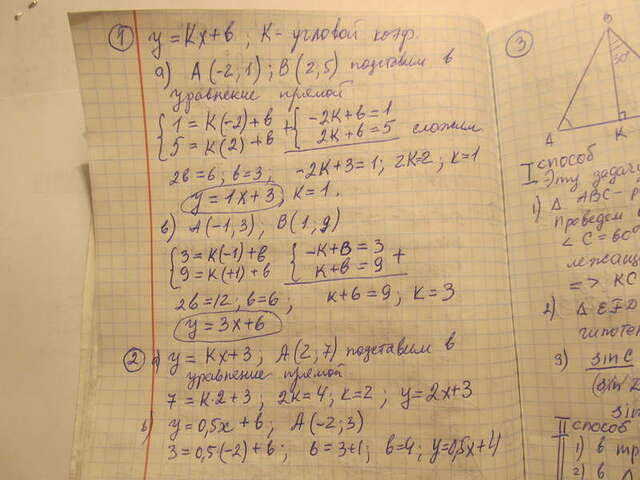 1 y = Kx+b ; K - угловой коэф.
a) A(-2;1) ; B(2;5) подставим в
уравнение прямой
{ 1 = K(-2)+b + { -2K+b=1
5 = K(2)+b 2K+b=5 сложим
2b=6; b=3; -2K+3=1; 2K=2; K=1
y=1x+3, K=1.
b) A(-1,3); B(1;9)
{ 3=K(-1)+b { -K+B=3 +
9=K(+1)+b K+b=9
2b=12; b=6; K+6=9; K=3
y=3x+6
2 a) y=Kx+3; A(2,7) подставим в
уравнение прямой
7=K·2+3; 2K=4; K=2; y=2x+3
b) y=0,5x+b; A(-2;3)
3=0,5(-2)+b; b=3+1; b=4; y=0,5x+4
3
B
30°
A
K
I способ
Эту задачу
1) Δ ABC - р
Проведем
∠C=60°
лежащ
=> KC
2) Δ EFD
гипотен
3) sin C
sin
II способ
1) в тр
2) в Δ